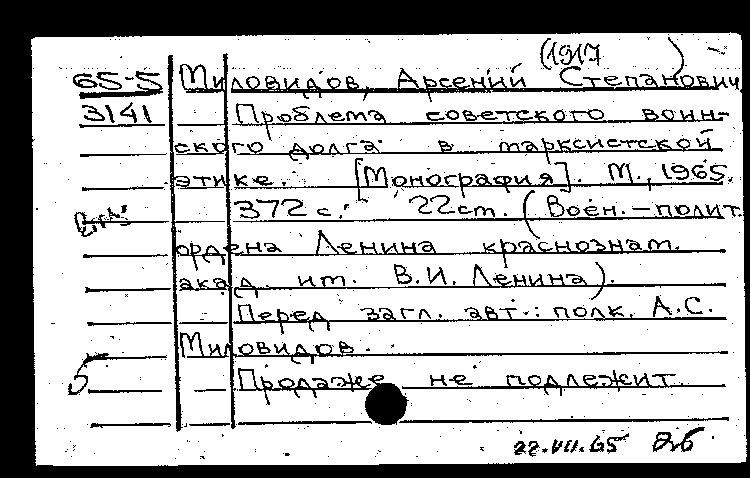 (1917 )
65-5 Миловидов, Арсений Степанович
3141 Проблема советского воин-
ского долга в марксистской
этике. [Монография]. М., 1965.
372 с. 22 ст. (Воен.-полит.
ордена Ленина краснознам.
акад им. В.И. Ленина).
Перед загл. авт.: полк. А.С.
Миловидов.
5
Продаже не подлежит
22.VII.65